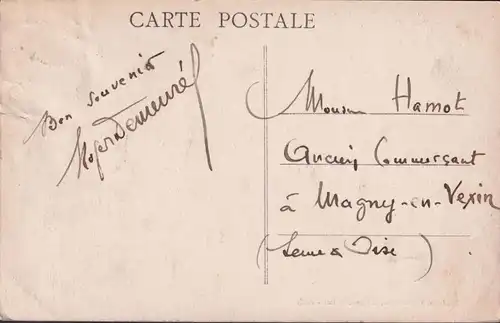 CARTE POSTALE
Bon souvenir
Monsieur Hamot
Ancien Commerçant
à Magny-en-Vexin
(Seine & Oise)